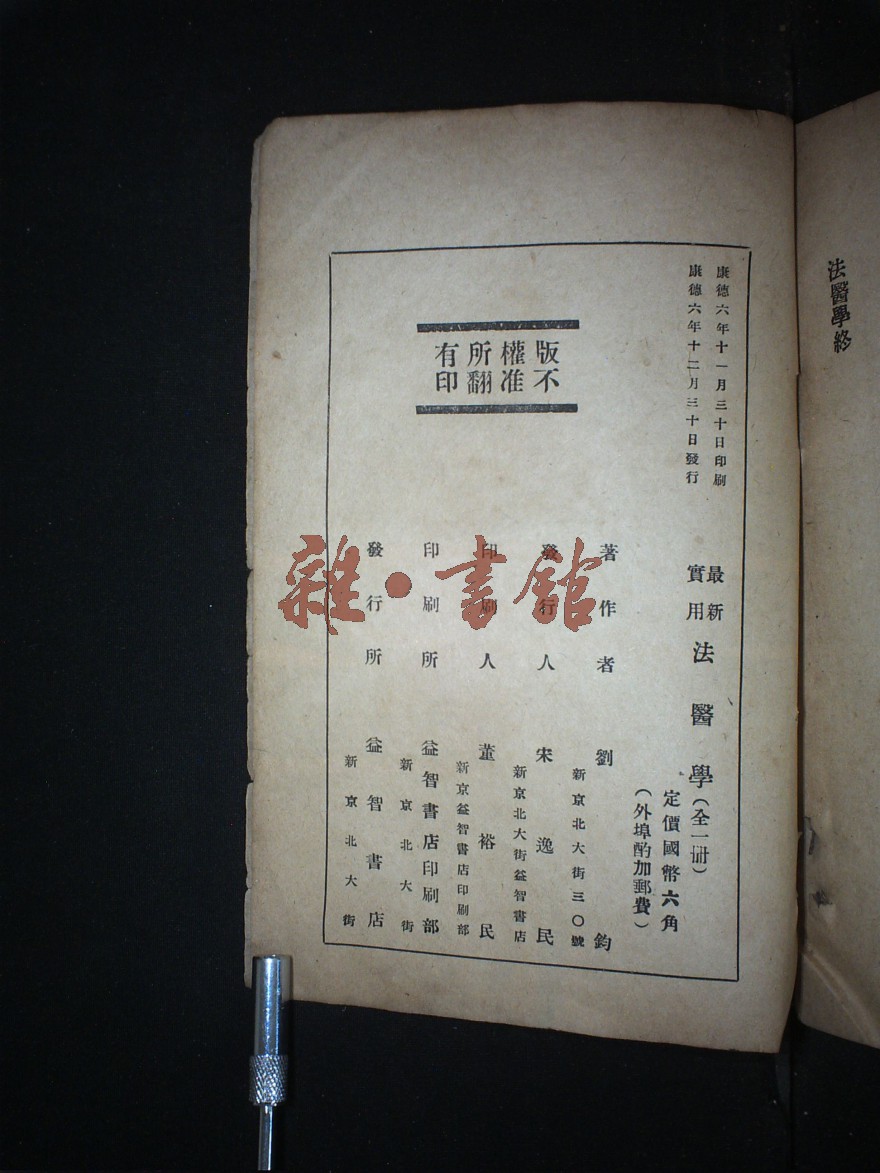 法醫學終
康德六年十一月三十日印刷
康德六年十二月三十日發行
最新
實用
法醫學（全一册）
定價國幣六角
（外埠酌加郵費）
版權所有
不准翻印
著作者 劉鈞
新京北大街三〇號
發行人 宋逸民
新京北大街益智書店
印刷人 董裕民
新京益智書店印刷部
印刷所 益智書店印刷部
新京北大街
發行所 益智書店
新京北大街
雜·書館